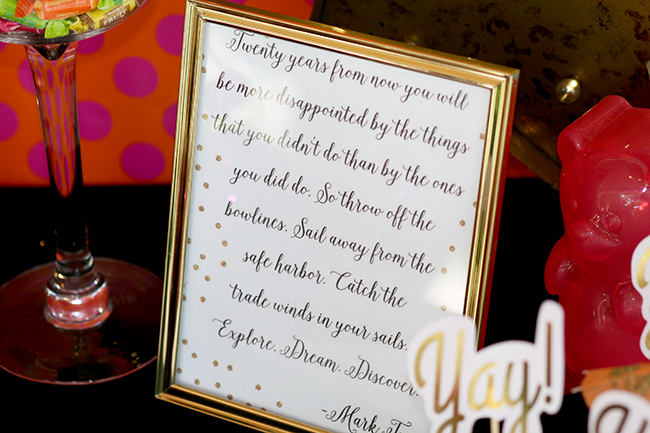 Twenty years from now you will
be more disappointed by the things
that you didn't do than by the ones
you did do. So throw off the
bowlines. Sail away from the
safe harbor. Catch the
trade winds in your sails.
Explore. Dream. Discover.
-Mark T
Yay!